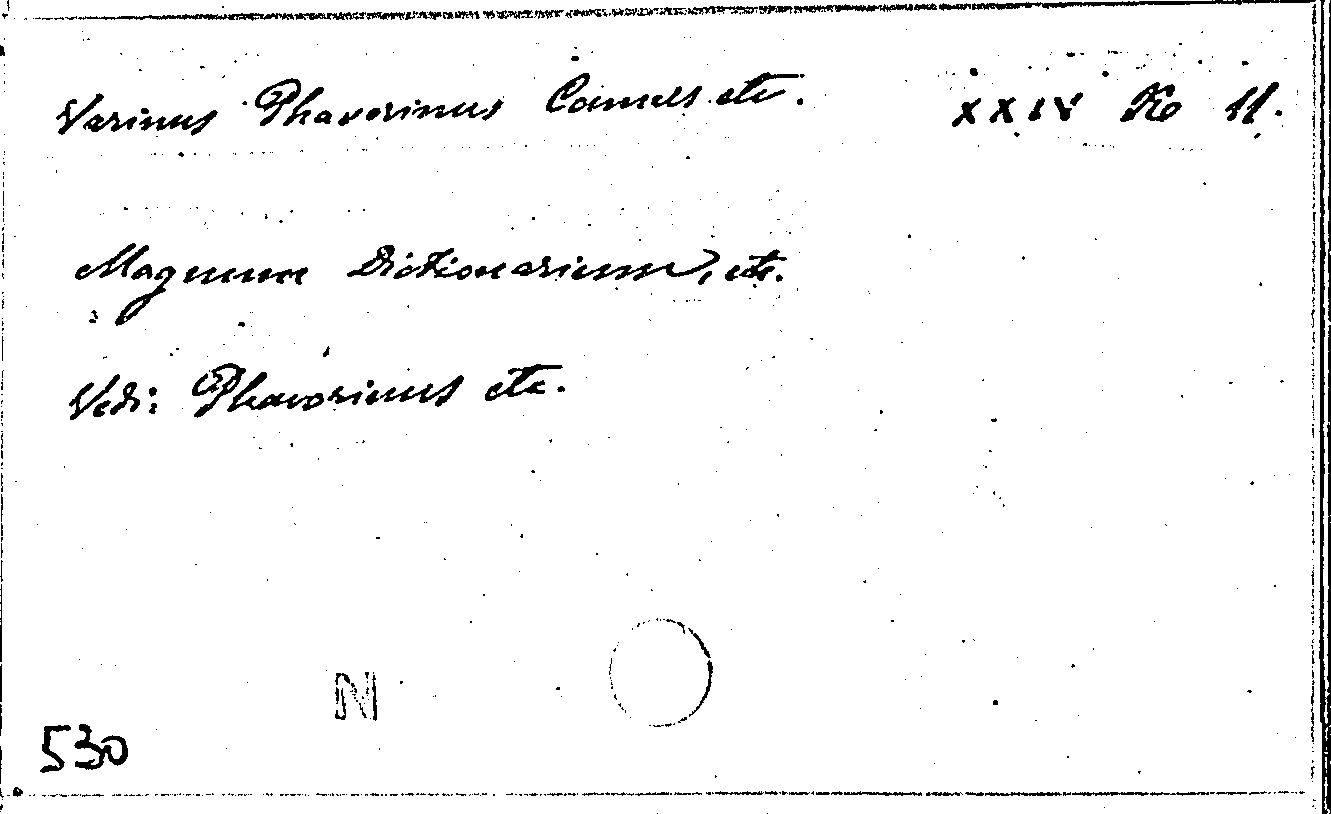 Varinus Phavorinus Camers etc. XXIV Ko 11.
Magnum Dictionarium, etc.
Vedi: Phavorinus etc.
N
530